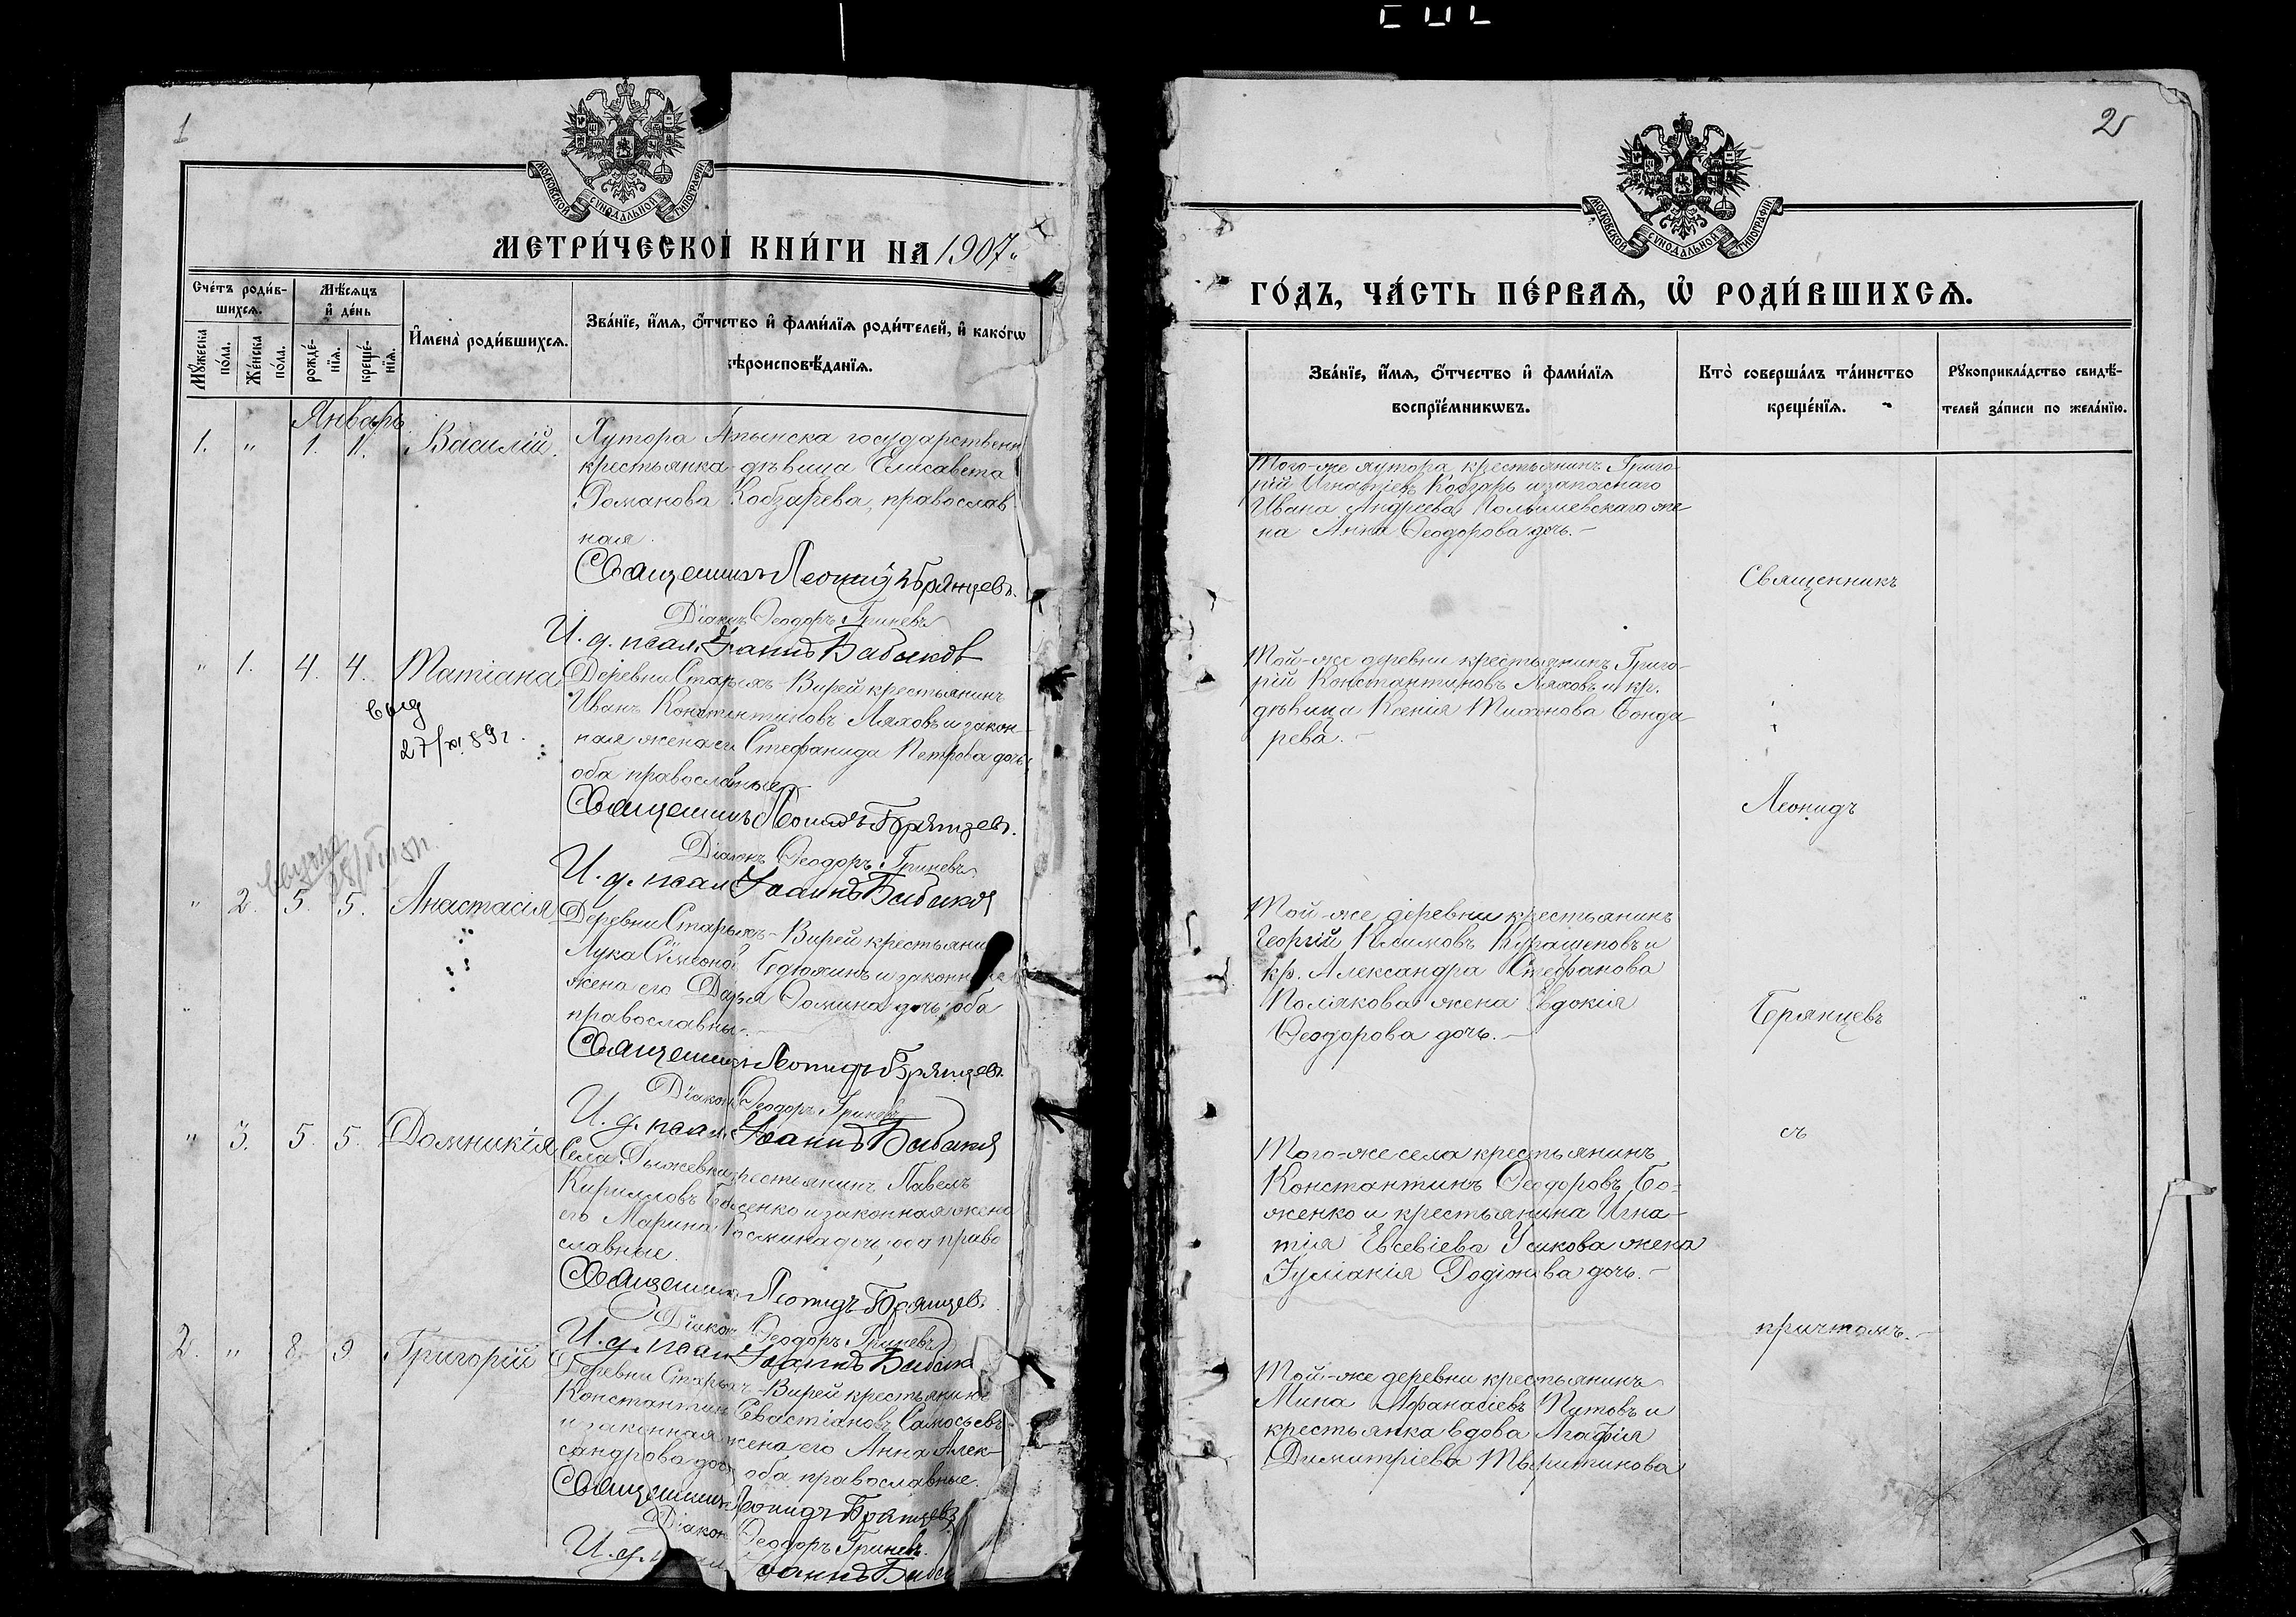 1
МОСКОВСКОЙ СѴНОДАЛЬНОЙ ТИПОГРАФІИ
МЕТРИ́ЧЕСКОЙ КНИ́ГИ НА 1907
Сче́тъ роди́в-
шихсѧ.
Мѣ́сѧцъ
и҆ де́нь
Мꙋ́жеска
по́ла.
Же́нска
по́ла.
рожде́-
нїѧ.
креще́-
нїѧ.
И҆мена̀ роди́вшихсѧ.
Зва́нїе, и҆́мѧ, ѻ҆́тчество и҆ фами́лїѧ роди́телей, и҆ како́гѡ
вѣроисповѣ́данїѧ.
Январь
1. " 1. 1. Василій.
Хутора государствен
крестьянка-дѣвица Елисавета
Романова Кобзарева, православ
ная.
Священникъ Леонидъ Брянцевъ.
Діаконъ Ѳеодоръ Гриневъ
И. д. псал. Іоаннъ Бабаков
" 1. 4. 4. Татіана
выд
27/XI 89 г.
Деревни Старыхъ-Вирей крестьянинъ
Иванъ Константиновъ Ляховъ и закон-
ная жена его Стефанида Петрова дочь,
оба православные
Священникъ Леонидъ Брянцевъ.
Діаконъ Ѳеодоръ Гриневъ
И. д. псал. Іоаннъ
" 2. 5. 5. Анастасія
Деревни Старыхъ-Вирей крестьянинъ
Лука и законная
жена его Дарья Ѳомина дочь, оба
православны.
Священникъ Леонидъ Брянцевъ.
Діаконъ Ѳеодоръ Гриневъ
И. д. псал. Іоаннъ
" 3. 5. 5. Домникія
Села Рыжевки крестьянинъ Павелъ
Кирилловъ и законная жена
его Марина Космина дочь, оба право
славные.
Священникъ Леонидъ Брянцевъ.
Діаконъ Ѳеодоръ Гриневъ
И. д. псал. Іоаннъ
2. " 8. 9 Григорій
Деревни Старыхъ-Вирей крестьянинъ
Константинъ Севастіановъ
и законная жена его Анна Алек-
сандрова дочь оба православные.
Священникъ Леонидъ Брянцевъ
Діаконъ Ѳеодоръ Гриневъ.
Іоаннъ
2
МОСКОВСКОЙ СѴНОДАЛЬНОЙ ТИПОГРАФІИ
ГО́ДЪ, ЧА́СТЬ ПЕ́РВАѦ, Ѡ҆ РОДИ́ВШИХСѦ.
Зва́нїе, и҆́мѧ, ѻ҆́тчество и҆ фами́лїѧ
воспрїе́мникѡвъ.
Кто̀ соверша́лъ та́инство
креще́нїѧ.
Рꙋкоприкла́дство свидѣ́-
телей за́писи по жела́нїю.
Того-же хутора крестьянинъ Григо-
рій Игнатіевъ Кобзарь и запаснаго
Ивана Андреева же
на Анна Ѳеодорова дочь.-
Той-же деревни крестьянинъ Григо-
рій Константиновъ Ляховъ и кр.
дѣвица Ксенія Тихонова Бонда
рева.-
Той-же деревни крестьянинъ
Георгій Климовъ и
кр. Александра Стефанова
Полякова жена Евдокія
Ѳеодорова дочь.-
Того-же села крестьянинъ
Константинъ Ѳеодоровъ Бо=
женко и крестьянина Игна-
тія Евсевіева Усикова жена
Іуліанія Родіонова дочь.-
Той-же деревни крестьянинъ
Мина Аѳанасіевъ Путовъ и
крестьянка вдова Агафія
Димитріева
Священникъ
Леонидъ
Брянцевъ
съ
причтомъ.-